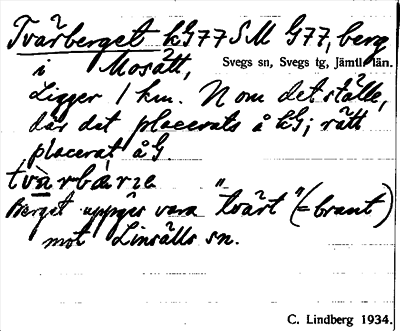 Tvärberget kG77SM G77, berg
i Mosätt, Svegs sn, Svegs tg, Jämtl. län.
Ligger 1 km. N om det ställe,
där det placerats å kG; rätt
placerat å G.
Berget uppges vara "tvärt" (= brant)
mot Linsälls sn.
C. Lindberg 1934.